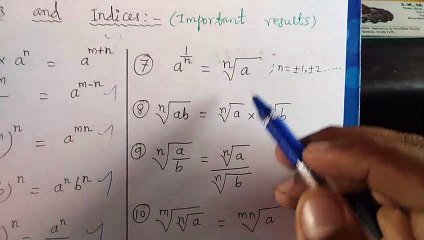 and Indices:= (Important results)
× aⁿ = a^{m+n}
= a^{m-n}
)ⁿ = a^{mn}
)ⁿ = aⁿbⁿ
= aⁿ
⑦ a^{1/n} = ⁿ√a ; n = ±1, ±2 .....
⑧ ⁿ√ab = ⁿ√a × √b
⑨ ⁿ√(a/b) = ⁿ√a / ⁿ√b
⑩ ᵐ√ⁿ√a = ᵐⁿ√a